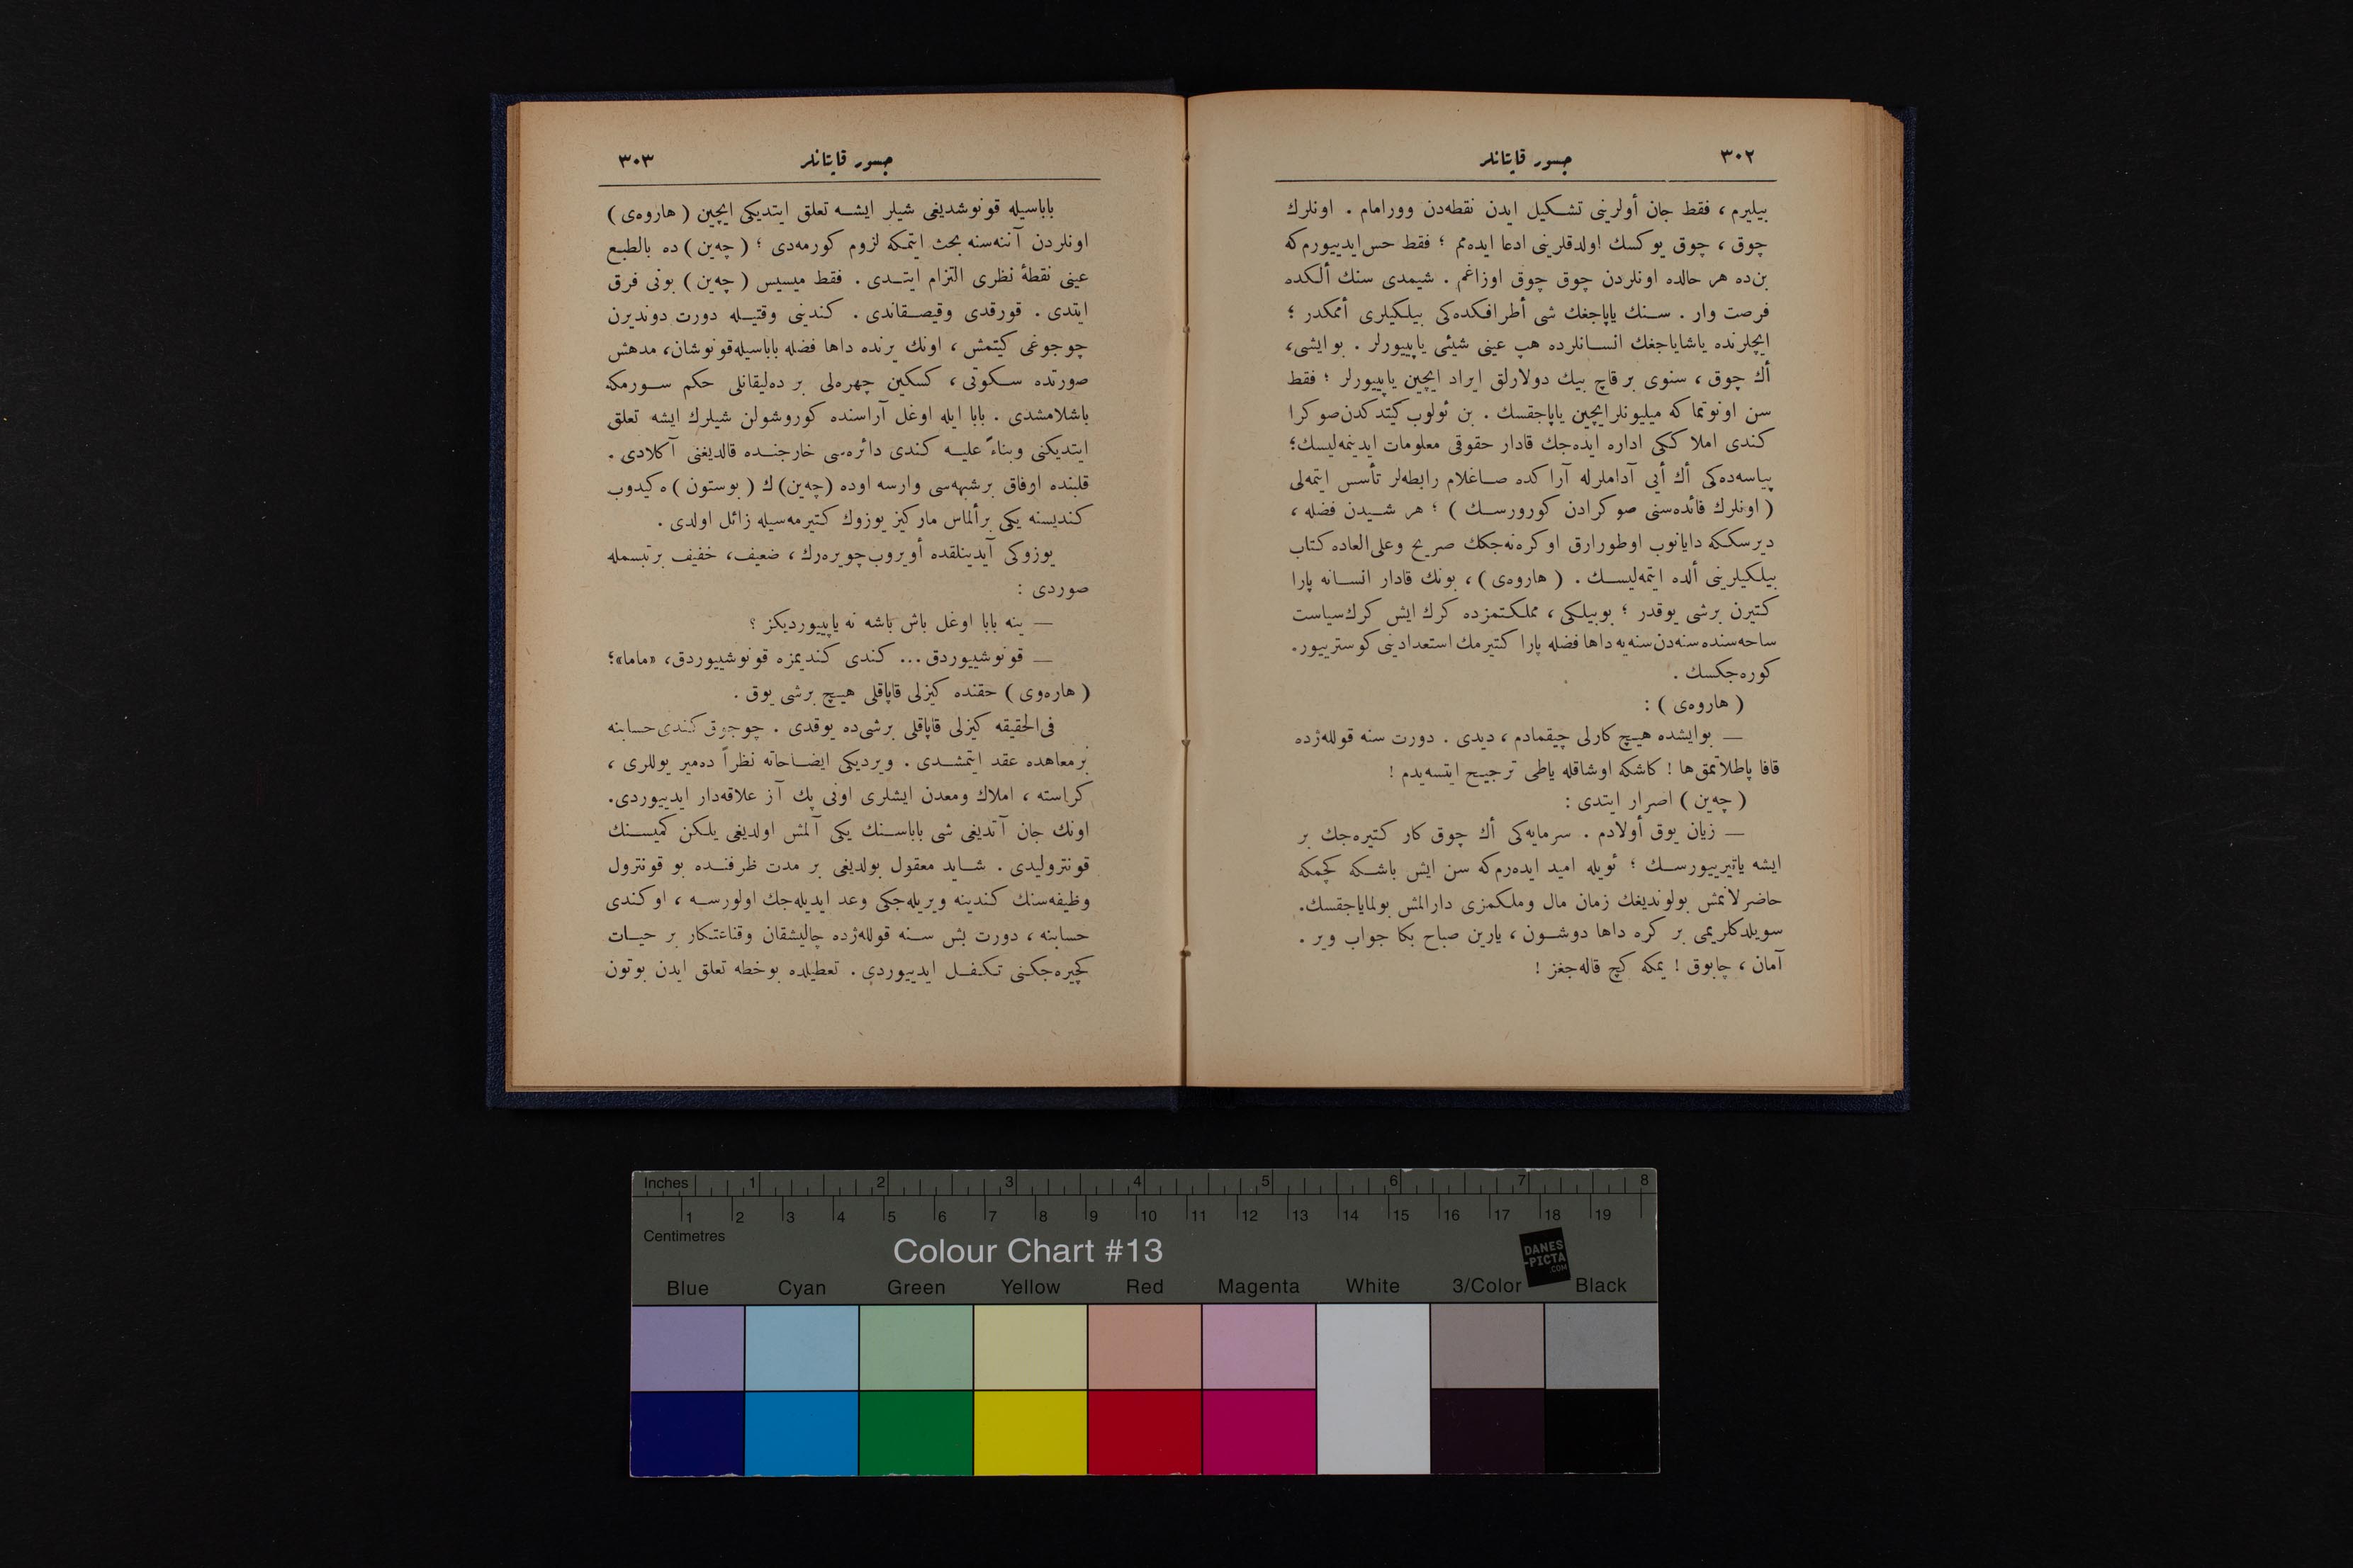 ٣٠٢
جسور قاپتانلر
بيليرم ، فقط جان أولرينى تشكيل ايدن نقطه‌دن وورامام . اونلرك
چوق ، چوق يوكسك اولدقلرينى ادعا ايده‌مم ؛ فقط حس ايدييورم كه
بن‌ده هر حالده اونلردن چوق چوق اوزاغم . شيمدى سنك ألكده
فرصت وار . سنك ياپاجغك شى أطرافكده‌كى بيلكيلرى أممكدر ؛
ايچلرنده ياشاياجغك انسانلرده هپ عينى شيئى ياپييورلر . بو ايشى،
أك چوق ، سنوى بر قاچ بيك دولارلق ايراد ايچين ياپييورلر ؛ فقط
سن اونوتما كه ميليونلر ايچين ياپاجقسك . بن ئولوب كيتدكدن صوكرا
كندى املاككى اداره ايده‌جك قادار حقوقى معلومات ايدينمه‌ليسك؛
پياسه‌ده‌كى أك أيى آداملرله آراكده صاغلام رابطه‌لر تأسس ايتمه‌لى
( اونلرك فائده‌سنى صوكرادن كورورسك ) ؛ هر شيدن فضله ،
ديرسككه دايانوب اوطورارق اوكره‌نه‌جكك صريح وعلى العاده كتاب
بيلكيلرينى ألده ايتمه‌ليسك . ( هاروه‌ى ) ، بونك قادار انسانه پارا
كتيرن برشى يوقدر ؛ بو بيلكى ، مملكتمزده كرك ايش كرك سياست
ساحه‌سنده سنه‌دن سنه‌يه داها فضله پارا كتيرمك استعدادينى كوسترييور.
كوره‌جكسك .
( هاروه‌ى ) :
— بو ايشده هيچ كارلى چيقمادم ، ديدى . دورت سنه قولله‌ژده
قافا پاطلاتمق‌ها ! كاشكه اوشاقله ياطى ترجيح ايتسه‌يدم !
( چه‌ين ) اصرار ايتدى :
— زيان يوق أولادم . سرمايه‌كى أك چوق كار كتيره‌جك بر
ايشه ياتيرييورسك ؛ ئويله اميد ايده‌رم كه سن ايش باشكه كچمكه
حاضرلانمش بولونديغك زمان مال وملكمزى دارالمش بولماياجقسك.
سويلدكلريمى بر كره داها دوشون ، يارين صباح بكا جواب وير .
آمان ، چابوق ! يمكه كچ قاله‌جغز !
جسور قاپتانلر
٣٠٣
باباسيله قونوشديغى شيلر ايشه تعلق ايتديكى ايچين ( هاروه‌ى )
اونلردن آننه‌سنه بحث ايتمكه لزوم كورمه‌دى ؛ ( چه‌ين ) ده بالطبع
عينى نقطۀ نظرى التزام ايتدى . فقط ميسيس ( چه‌ين ) بونى فرق
ايتدى . قورقدى وقيصقاندى . كندينى وقتيله دورت دونديرن
چوجوغى كيتمش ، اونك يرنده داها فضله باباسيله قونوشان، مدهش
صورتده سكوتى ، كسكين چهره‌لى بر ده‌ليقانلى حكم سورمكه
باشلامشدى . بابا ايله اوغل آراسنده كوروشولن شيلرك ايشه تعلق
ايتديكنى وبناءً عليه كندى دائره‌سى خارجنده قالديغنى آكلادى .
قلبنده اوفاق بر شبهه‌سى وارسه اوده (چه‌ين) ك ( بوستون ) ه كيدوب
كنديسنه يكى بر ألماس ماركيز يوزوك كتيرمه‌سيله زائل اولدى .
يوزوكى آيدينلقده أويروب چويره‌رك ، ضعيف، خفيف بر تبسمله
صوردى :
— ينه بابا اوغل باش باشه نه ياپييورديكز ؟
— قونوشييوردق... كندى كنديمزه قونوشييوردق، «ماما»؛
( هاره‌وى ) حقنده كيزلى قاپاقلى هيچ برشى يوق .
فى الحقيقه كيزلى قاپاقلى برشى‌ده يوقدى . چوجوق كندى حسابنه
بر معاهده عقد ايتمشدى . ويرديكى ايضاحاته نظراً ده‌مير يوللرى ،
كراسته ، املاك ومعدن ايشلرى اونى پك آز علاقه‌دار ايدييوردى.
اونك جان آتديغى شى باباسنك يكى آلمش اولديغى يلكن كميسنك
قونتروليدى . شايد معقول بولديغى بر مدت ظرفنده بو قونترول
وظيفه‌سنك كندينه ويريله‌جكى وعد ايديله‌جك اولورسه ، او كندى
حسابنه ، دورت بش سنه قولله‌ژده چاليشقان وقناعتكار بر حيات
كچيره‌جكنى تكفل ايدييوردى . تعطيلده بو خطه تعلق ايدن بوتون
Inches 1 2 3 4 5 6 7 8
1 2 3 4 5 6 7 8 9 10 11 12 13 14 15 16 17 18 19
Centimetres
Colour Chart #13
DANES
-PICTA
.COM
Blue Cyan Green Yellow Red Magenta White 3/Color Black